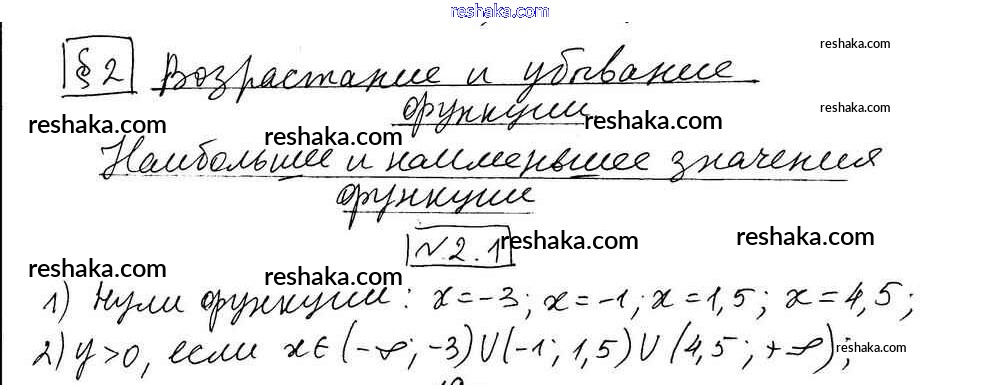 reshaka.com
§2 Возрастание и убывание reshaka.com
функции reshaka.com
reshaka.com reshaka.com reshaka.com
Наибольшее и наименьшее значения
функции
№2.1 reshaka.com reshaka.com
reshaka.com reshaka.com
1) Нули функции: x=-3; x=-1; x=1,5; x=4,5;
2) y>0, если x∈(-∞; -3)∪(-1; 1,5)∪(4,5; +∞); reshaka.com